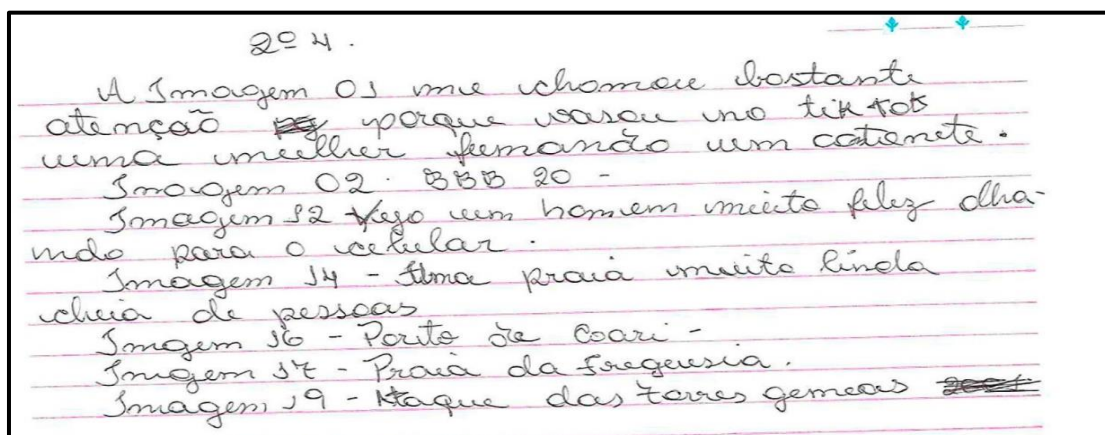 2º 4.
A Imagem 01 me chamou bastante
atenção porque vasou no tik tok
uma mulher fumando um cotonete.
Imagem 02. BBB 20 -
Imagem 12 Vejo um homem muito feliz olha-
ndo para o celular.
Imagem 14 - Uma praia muito linda
cheia de pessoas
Imgem 16 - Porto de Coari -
Imgem 17 - Praia da freguesia.
Imagem 19 - Ataque das torres gemeas